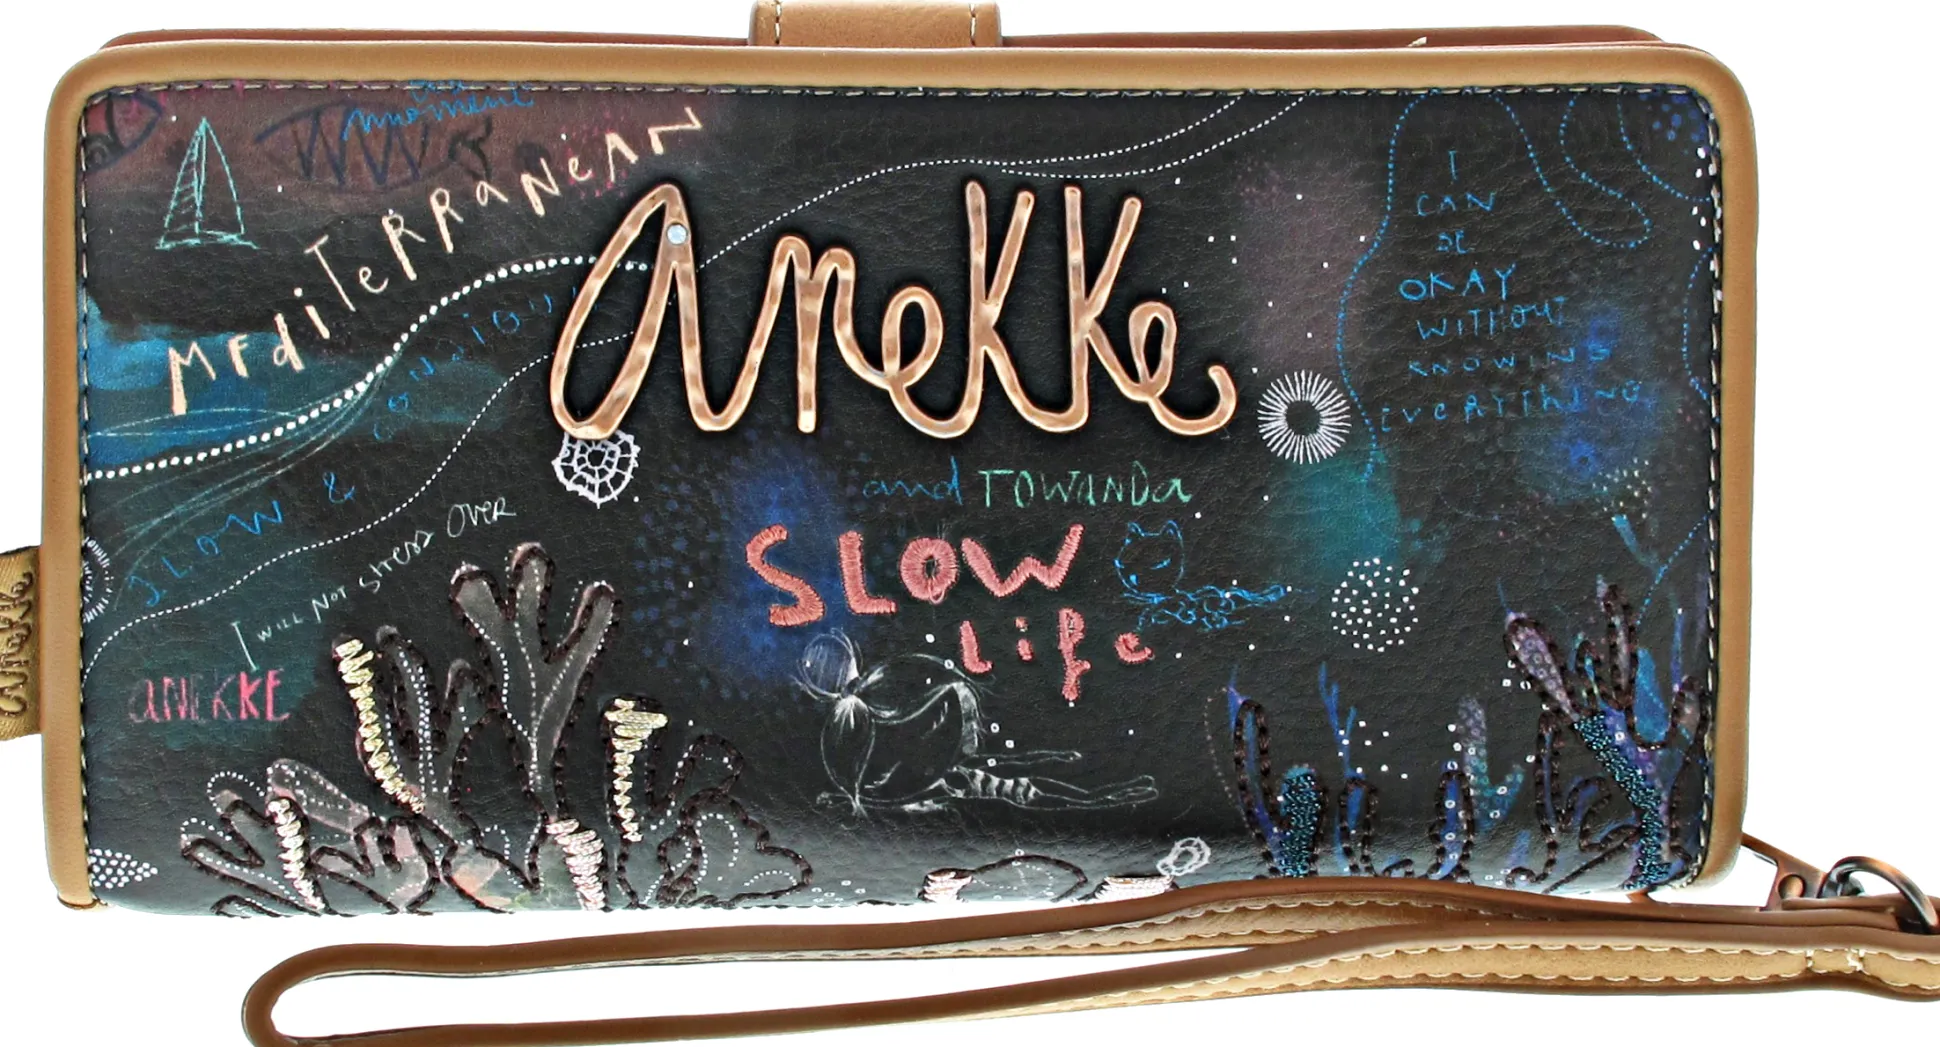 moment
MEdiTeRRANeAN
anekke
I
CAN
BE
OKAY
WITHOUT
KNOWING
EVERYTHING
SLOW &
and TOWANDa
SLOW
Life
I WILL NOT STRESS OVER
aNEKKE
anekke